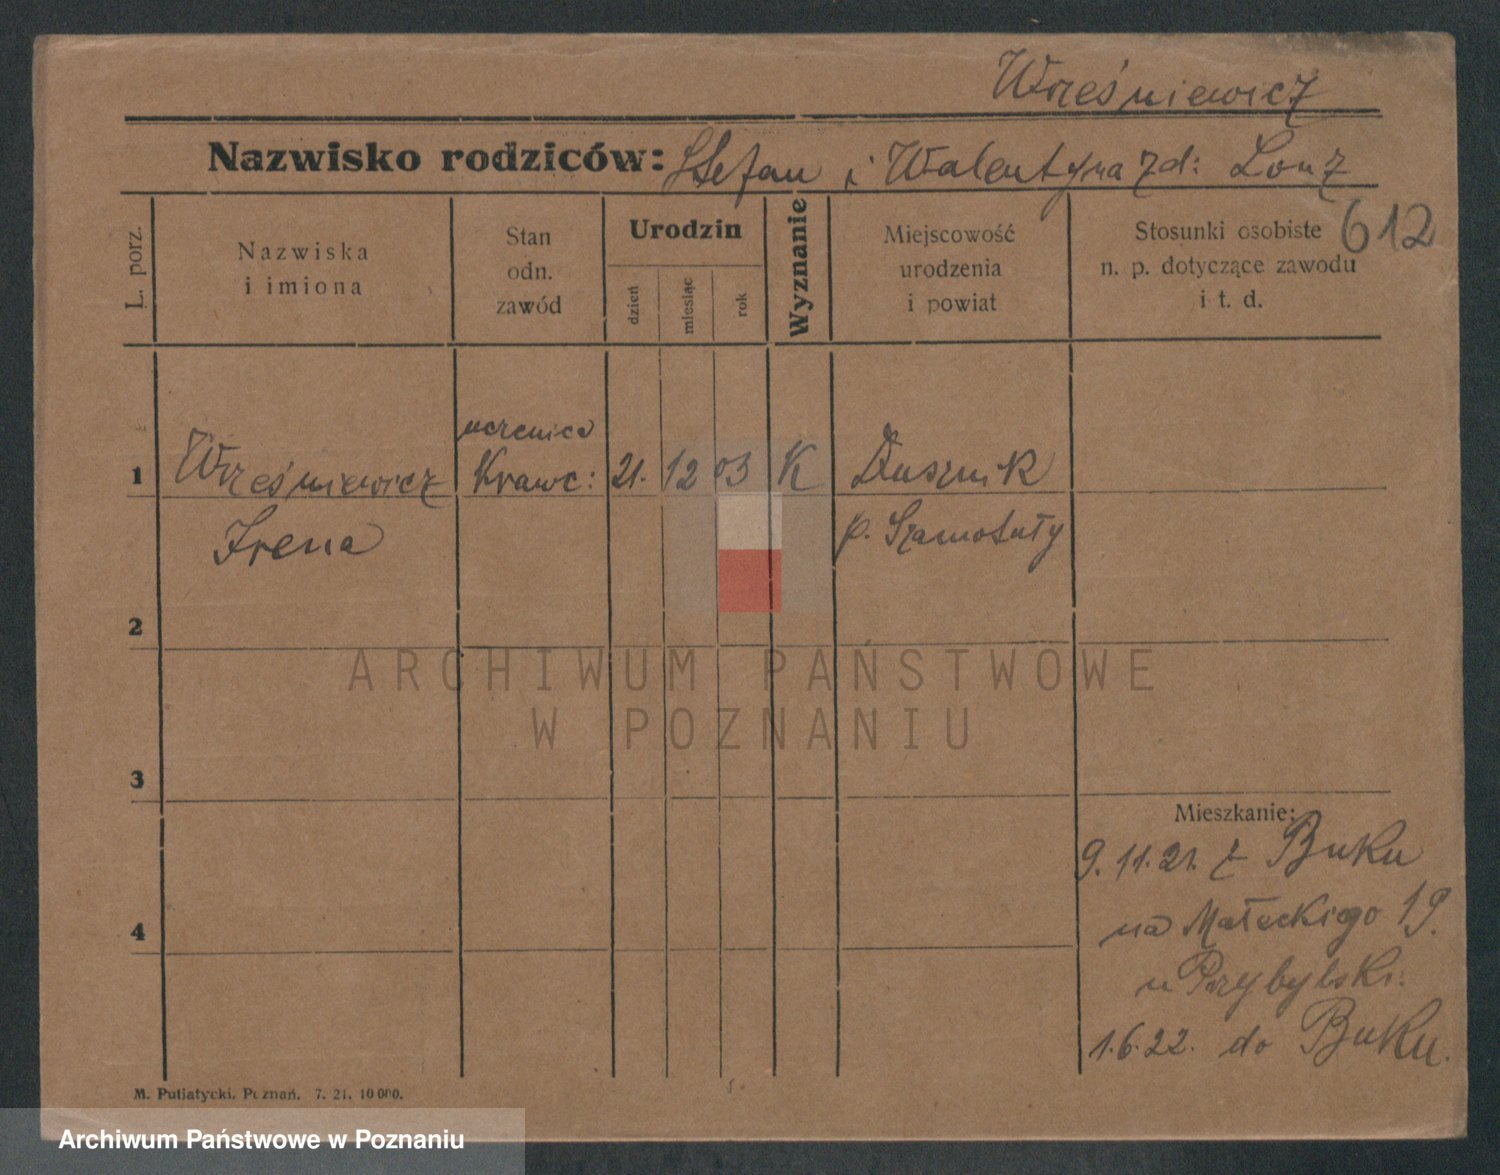 Wreśniewicz
Nazwisko rodziców: Stefan i Walentyna zd: Lonz
612
L. porz.
Nazwiska
i imiona
Stan
odn.
zawód
Urodzin
dzień
miesiąc
rok
Wyznanie
Miejscowość
urodzenia
i powiat
Stosunki osobiste
n. p. dotyczące zawodu
i t. d.
uczenica
1 Wreśniewicz Krawc: 21. 12 03 K Dusznik
Irena p. Szamotuły
2
ARCHIWUM PAŃSTWOWE
W POZNANIU
3
Mieszkanie:
9. 11. 21. z Buku
4
na Małeckiego 19.
u Przybylski:
1. 6. 22. do Buku.
M. Putiatycki, Poznań. 7. 21. 10 000.
Archiwum Państwowe w Poznaniu